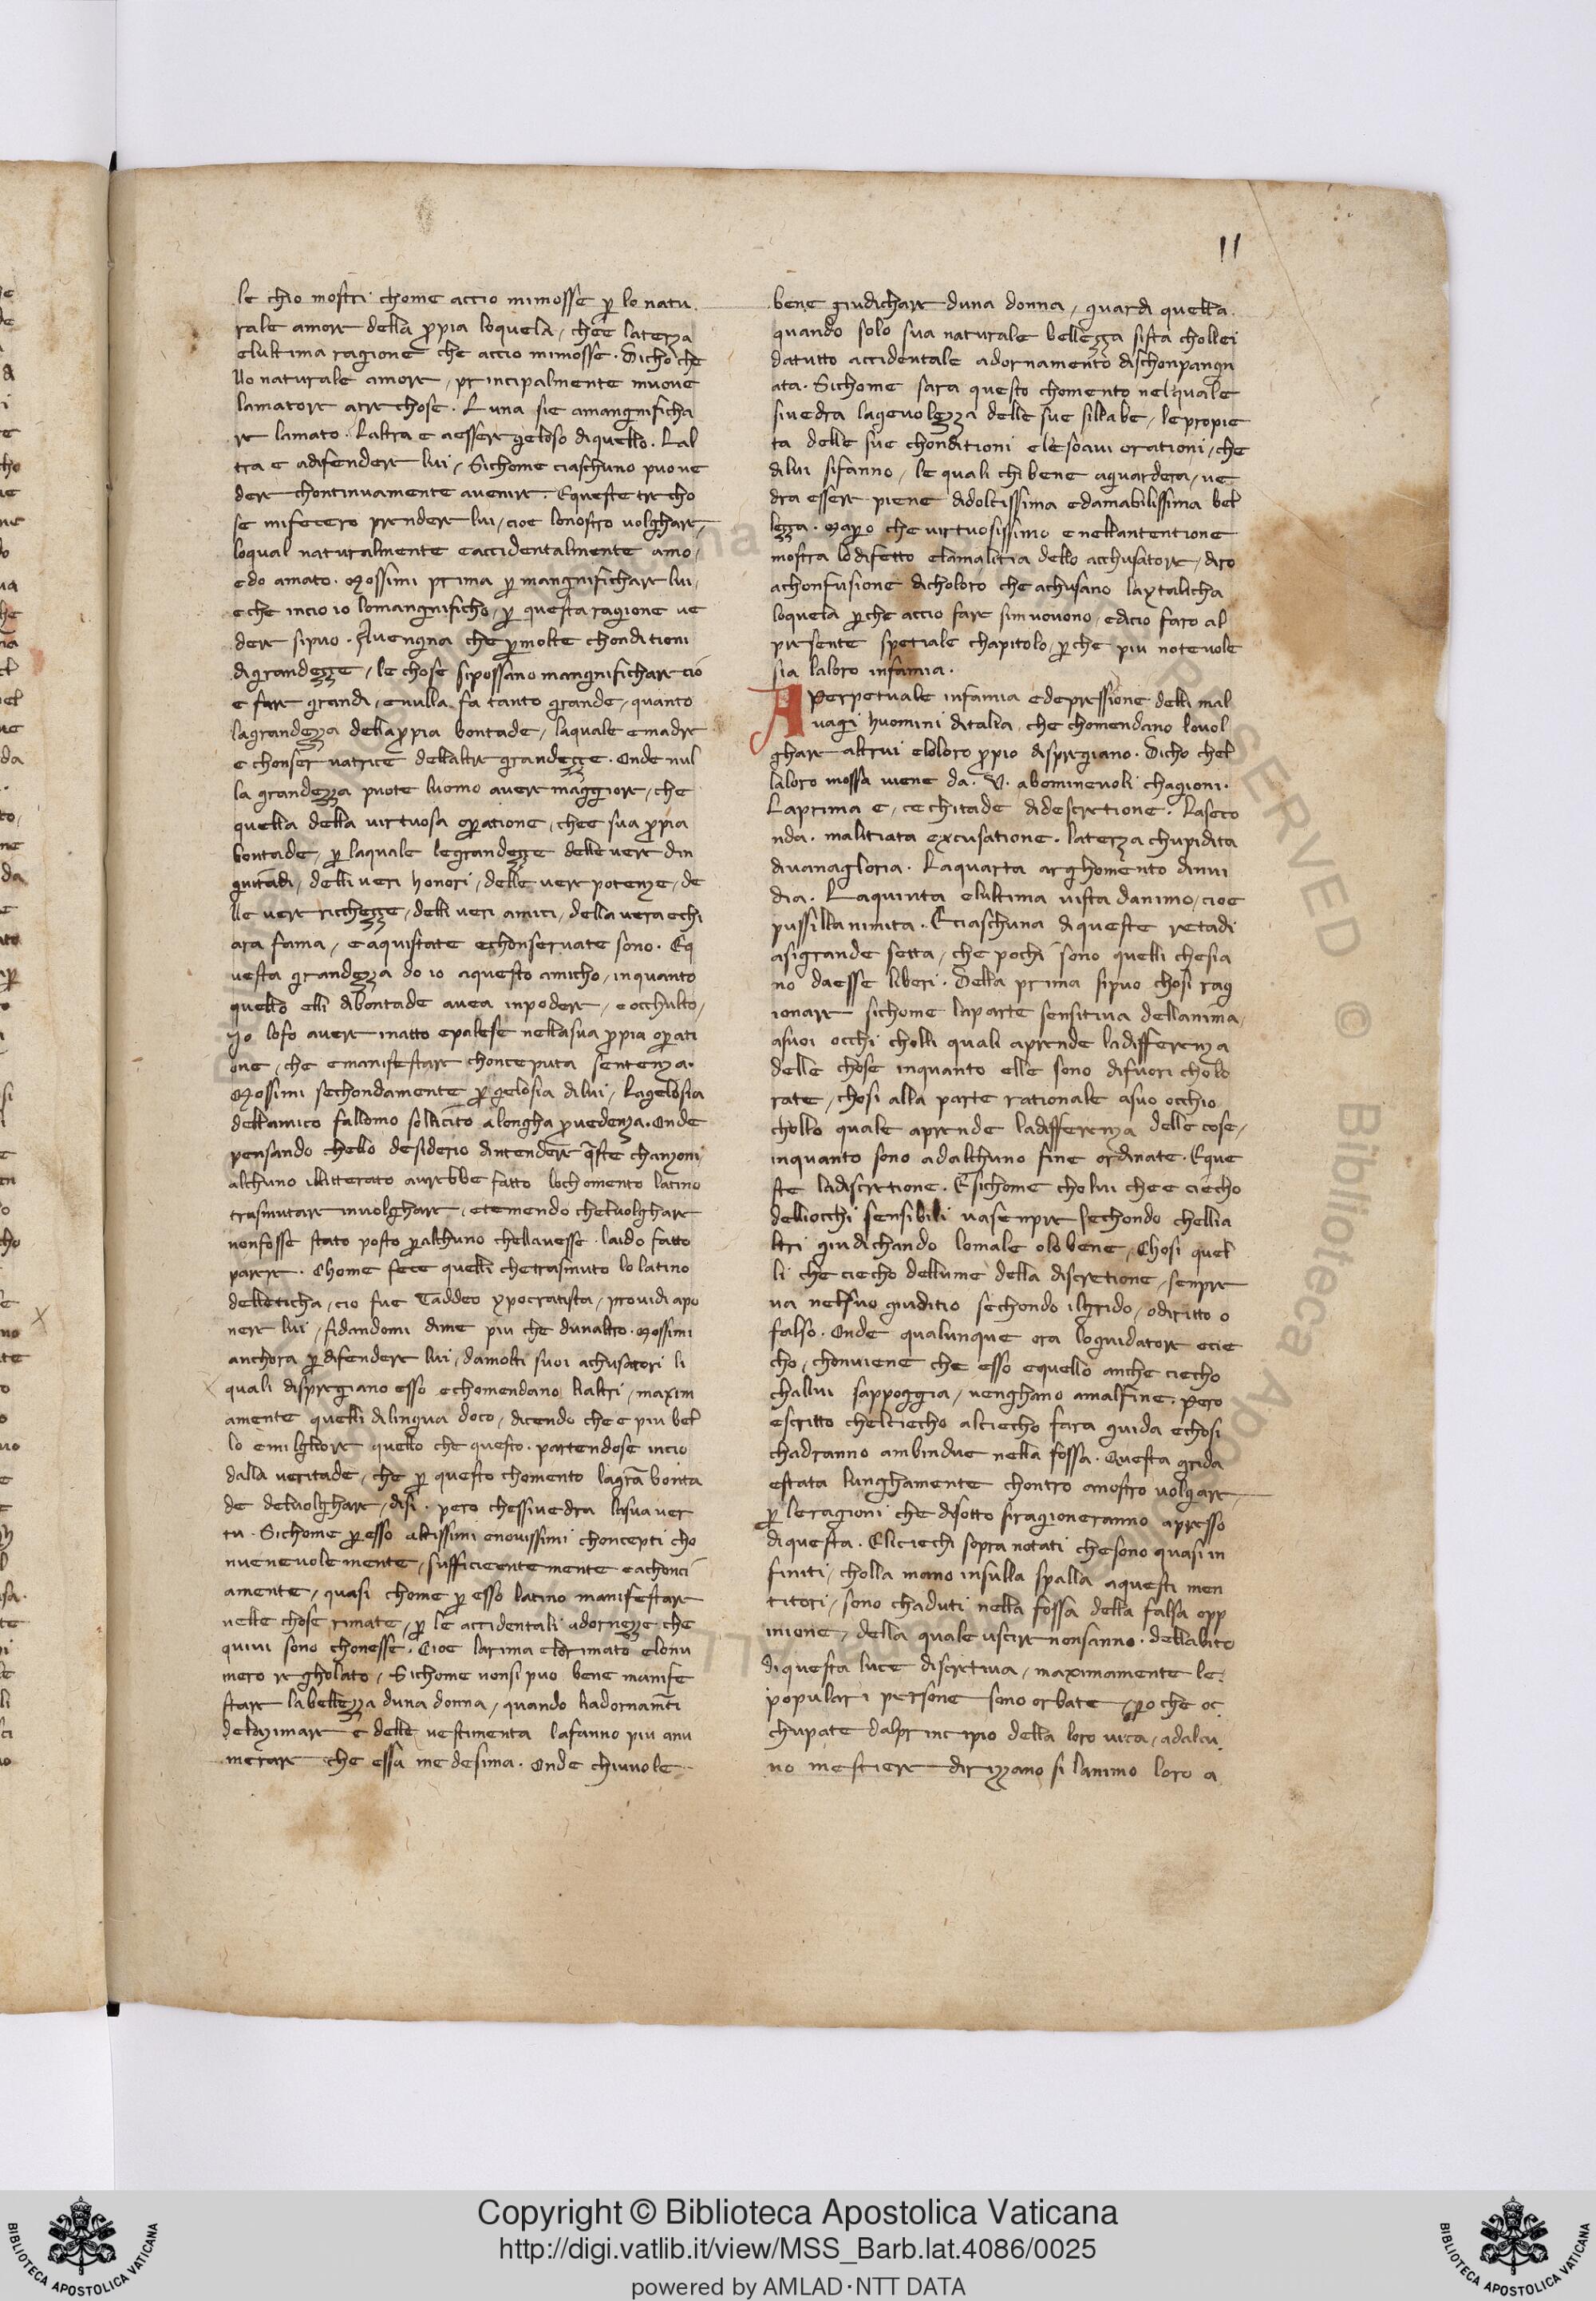 11
le chio mostri chome accio mimosse per lo natu
rale amore della propia loquela / chee laterza
elultima ragione che accio mimosse . Dicho che
llo naturale amore / principalmente muove
lamatore atre chose . Luna sie amangnificha
re lamato . Laltra e aessere geloso diquello . Lal
tra e adifendere lui / Sichome ciaschuno puo ve
dere chontinuamente avenire . Equeste tre cho
se mifecero prendere lui / cioe lonostro volghare /
loqual naturalmente eaccidentalmente amo /
edo amato . Mossimi prima per mangnifichare lui /
eche incio io lomangnificho / per questa ragione ve
dere sipuo . Avengna che per molte chonditioni
digrandezze / le chose sipossano mangnifichare cio
e fare grandi / enulla fa tanto grande / quanto
lagrandezza dellapropia bontade / laquale emadre
e chonservatrice dellaltre grandezze . Onde nul
la grandezza puote luomo avere maggiore / che
quella della virtuosa operatione / chee sua propia
bontade / per laquale legrandezze delle vere din
guitadi / delli veri honori / delle vere potenze / de
lle vere richezze / delli veri amici / della vera echi
ara fama / eaquistate echonservate sono . Eq
uesta grandezza do io aquesto amicho / inquanto
quello elli dibontade avea inpodere / eocchulto /
io lofo avere inatto epalese nellasua propia operati
one / che emanifestare chonceputa sentenza .
Mossimi sechondamente per gelosia dilui / Lagelosia
dellamico fallomo sollicito alongha provedenza . Onde
pensando chello desiderio dintendere queste chanzoni
alchuno illitterato avrebbe fatto lochomento latino
trasmutare involghare / etemendo chelvolghare
nonfosse stato posto per alchuno chellavesse laido fatto
parere . Chome fece quelli chetrasmuto lo latino
delleticha / cio fue Taddeo ypocratista / providi apo
nere lui / fidandomi dime piu che dunaltro . Mossimi
anchora per difendere lui / damolti suoi achusatori li
quali dispregiano esso echomendano lialtri / maxim
amente quelli dilingua doco / dicendo che e piu bel
lo emilgliore quello che questo . partendose incio
dalla veritade / che per questo chomento lagran bonta
de delvolghare / disi . pero chessivedra lasua ver
tu . Sichome per esso altissimi enovissimi choncepti cho
nvenevolemente / sufficientemente eachonci
amente / quasi chome per esso latino manifestare
nelle chose rimate / per le accidentali adornezze che
quivi sono chonesse . Cioe larima elorimato elonu
mero regholato / Sichome nonsi puo bene manife
stare labellezza duna donna / quando liadornamenti
delazimare e delle vestimenta lafanno piu anu
merare che essa medesima . Onde chivuole
bene giudichare duna donna / guardi quella
quando solo sua naturale bellezza sista chollei
datutto accidentale adornamento dischonpangn
ata . Sichome sara questo chomento nelquale
sivedra lagevolezza delle sue sillabe / lepropie
ta delle sue chonditioni elesoavi orationi / che
dilui sifanno / le quali chi bene aguardera / ve
dra essere piene didolcissima edamabilissima bel
lezza . Mapero che virtuosissimo enellantentione
mostra lodifetto elamalitia dello acchusatore / diro
achonfusione dicholoro che achusano laytalicha
loquela perche accio fare simuovono / edicio faro al
presente spetiale chapitolo / perche piu notevole
sia laloro infamia .
A Perpetuale infamia edepressione delli mal
vagi huomini ditalia che chomendano lovol
ghare altrui eloloro propio dispregiano . Dicho chel
laloro mossa viene da . V . abominevoli chagioni .
Laprima e / cechitade didescretione . Laseco
nda . malitiata excusatione . laterza chupidita
divanagloria . Laquarta arghomento dinvi
dia . Laquinta elultima vista danimo / cioe
pussillanimita . Eciaschuna diqueste retadi
asigrande setta / che pochi sono quelli chesia
no daesse liberi . Della prima sipuo chosi rag
ionare sichome laparte sensitiva dellanima /
asuoi occhi cholli quali aprende ladifferenza
delle chose inquanto elle sono difuori cholo
rate / chosi alla parte rationale asuo occhio
chollo quale aprende ladifferenza delle cose /
inquanto sono adalchuno fine ordinate . Eque
ste ladiscretione . Esichome cholui che e ciecho
delliocchi sensibili vasenpre sechondo chellia
ltri giudichando lomale olo bene / Chosi quel
li che ciecho dellume della discretione / senpre
va nelsuo giuditio sechondo ilgrido / odiritto o
falso . Onde qualunque ora loguidatore ecie
cho / chonviene che esso equello anche ciecho
challui sappoggia / venghano amalfine . Pero
escritto chelciecho alciecho fara guida echosi
chadranno ambindue nella fossa . Questa grida
estata lunghamente chontro anostro volgare /
per leragioni che disotto siragioneranno apresso
diquesta . Eliciechi sopra notati chesono quasi in
finiti / cholla mano insulla spalla aquesti men
titori / sono chaduti nella fossa della falsa opp
inione / della quale uscire nonsanno . dellabito
diquesta luce discretiva / maximamente le
populari persone sono orbate / pero che oc
chupate dalprincipio della loro vita / adalcu
no mestiere dirizzano si lanimo loro a
Copyright © Biblioteca Apostolica Vaticana
http://digi.vatlib.it/view/MSS_Barb.lat.4086/0025
powered by AMLAD·NTT DATA